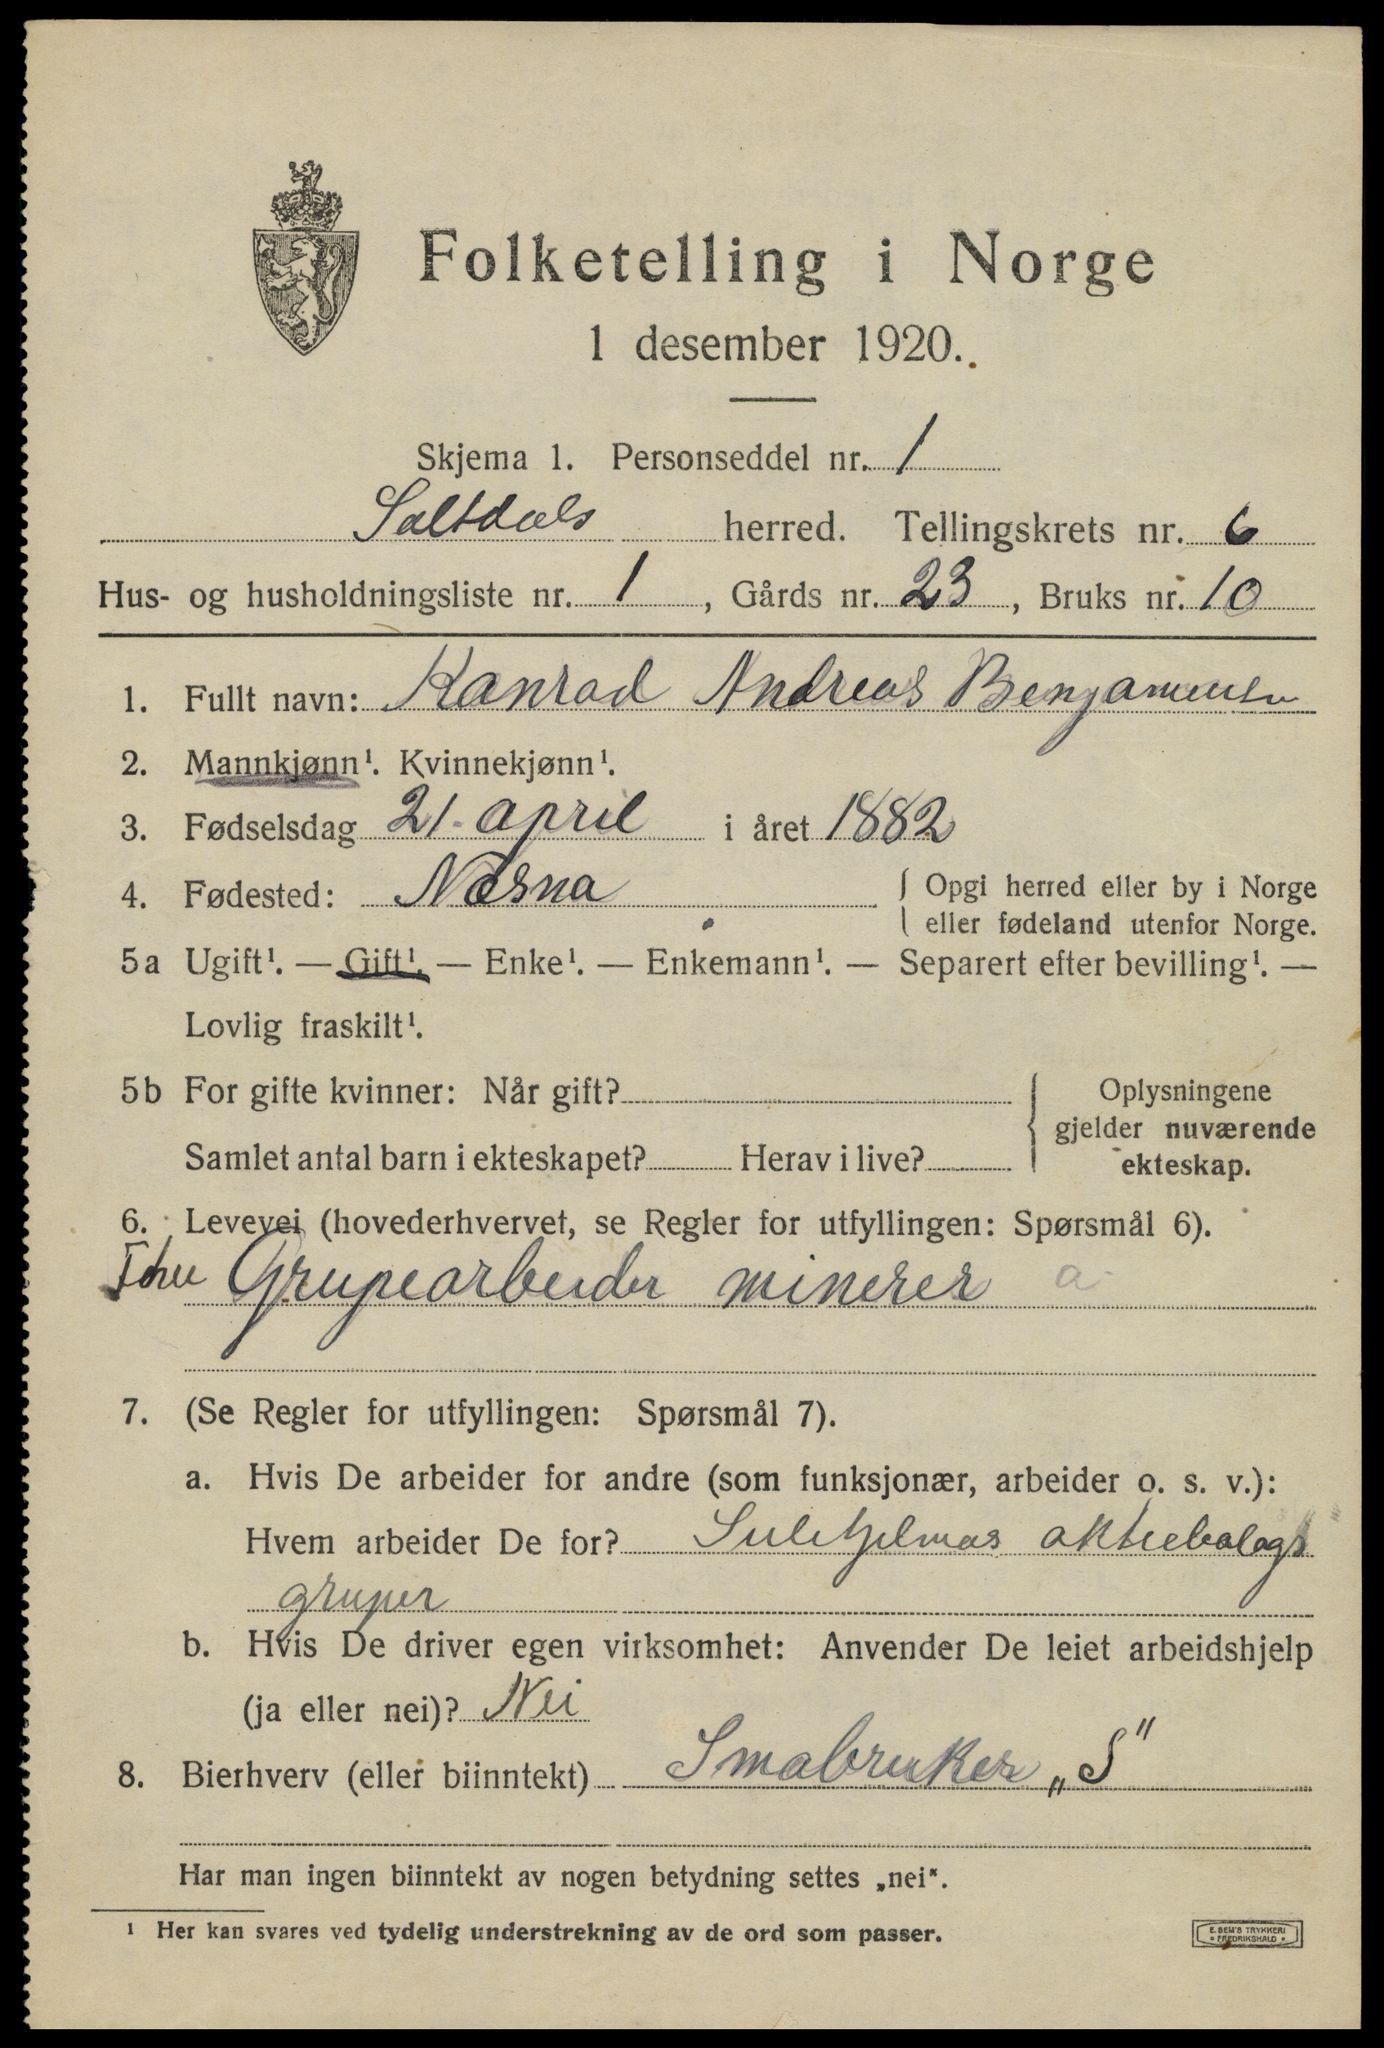 Folketelling i Norge
1 desember 1920.
Skjema 1. Personseddel nr. 1
Saltdals herred. Tellingskrets nr. 6
Hus- og husholdningsliste nr. 1, Gårds nr. 23, Bruks nr. 10
1. Fullt navn: Konrad Andreas Benjaminsen
2. Mannkjønn¹. Kvinnekjønn¹.
3. Fødselsdag 21. april i året 1882
4. Fødested: Næsna { Opgi herred eller by i Norge
eller fødeland utenfor Norge.
5a Ugift¹. — Gift¹. — Enke¹. — Enkemann¹. — Separert efter bevilling¹. —
Lovlig fraskilt¹.
5b For gifte kvinner: Når gift? { Oplysningene
gjelder nuværende
Samlet antal barn i ekteskapet? Herav i live? ekteskap.
6. Levevei (hovederhvervet, se Regler for utfyllingen: Spørsmål 6).
Grupearbeider minerer a
7. (Se Regler for utfyllingen: Spørsmål 7).
a. Hvis De arbeider for andre (som funksjonær, arbeider o. s. v.):
Hvem arbeider De for? Sulitjelmas aktiebolags
gruper
b. Hvis De driver egen virksomhet: Anvender De leiet arbeidshjelp
(ja eller nei)? Nei
8. Bierhverv (eller biinntekt) Smabruker „S"
Har man ingen biinntekt av nogen betydning settes „nei".
¹ Her kan svares ved tydelig understrekning av de ord som passer.
E. SEM'S TRYKKERI
• FREDRIKSHALD •